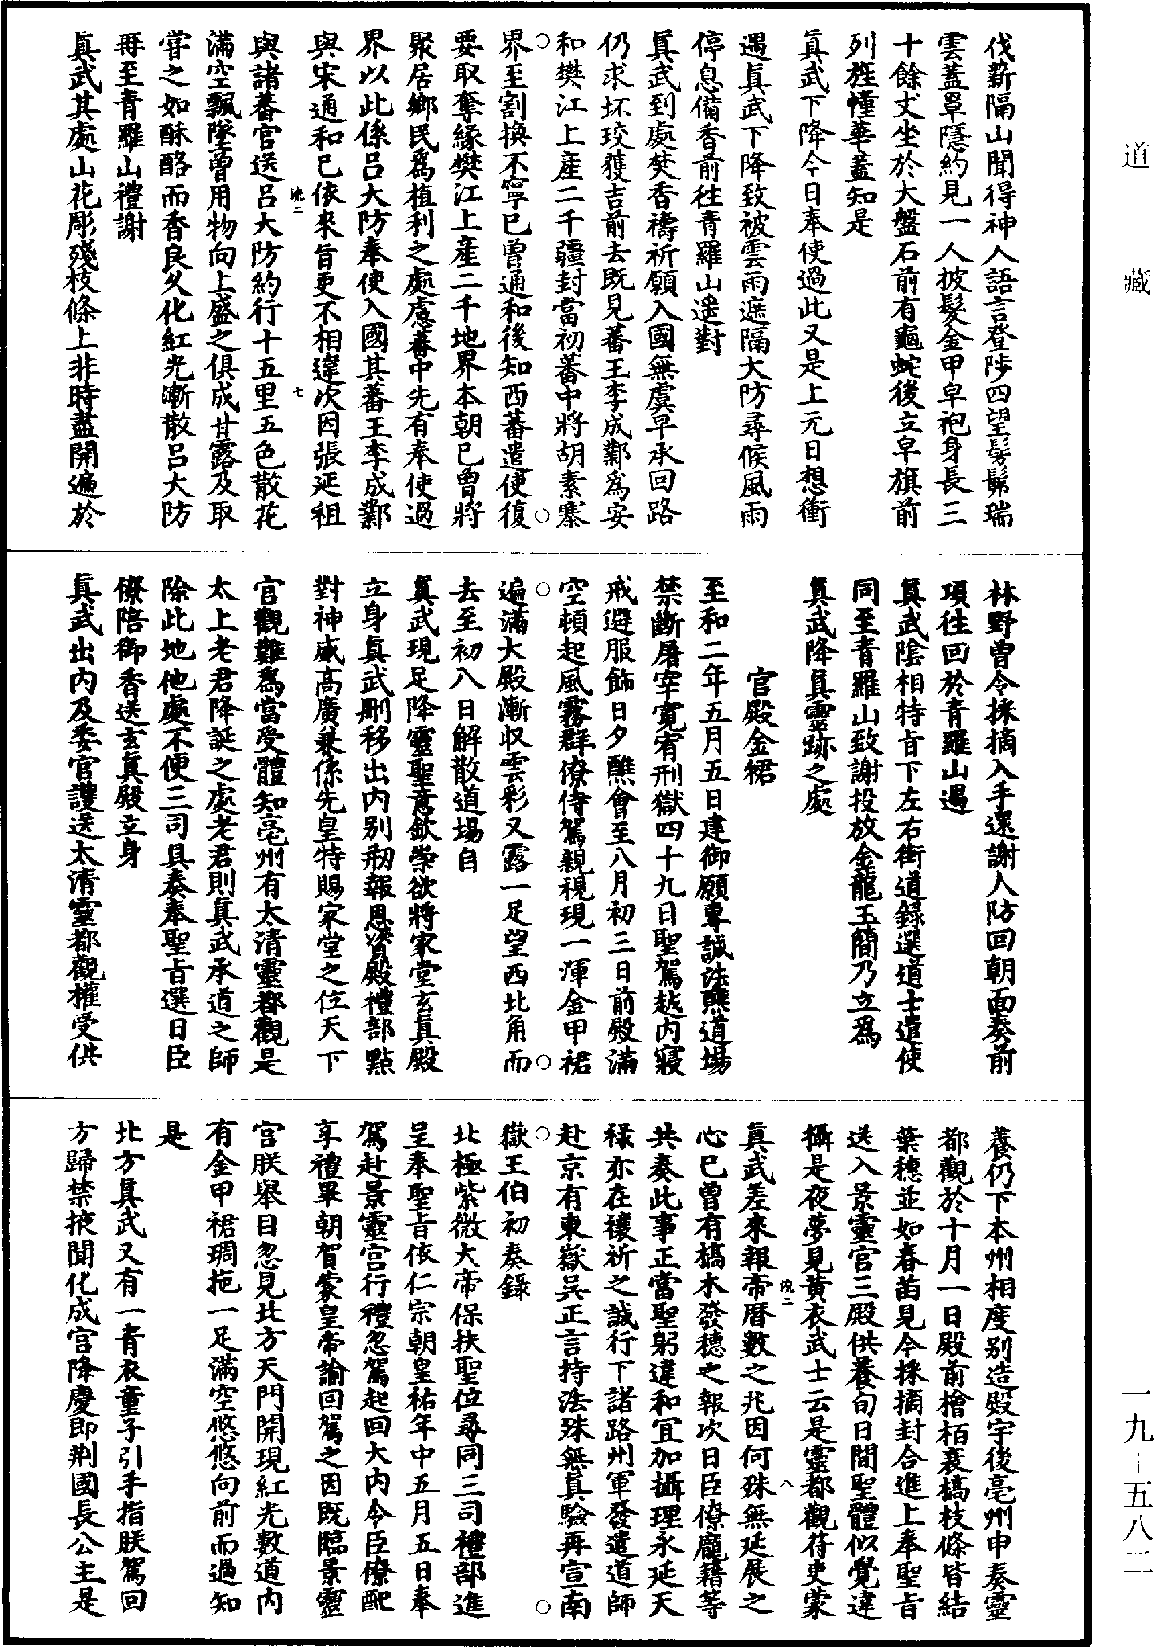 道藏
伐薪隔山聞得神人語言登陟四望髣髴瑞
雲蓋罩隱約見一人披髮金甲皁袍身長三
十餘丈坐於大盤石前有龜蛇後立皁旗前
列旌幢華蓋知是
真武下降今日奉使過此又是上元日想衝
遇真武下降致被雲雨遮隔大防尋候風雨
停息備香前往青羅山遥對
真武到處焚香禱祈願入國無虞早承回路
仍求坏珓獲吉前去既見蕃王李成鄴為安
和樊江上産二千疆封當初蕃中將胡素寨
界至割換不寧已曾通和後知西蕃遣使復
要取奪緣樊江上産二千地界本朝已曾將
聚居鄉民為植利之處慮蕃中先有奉使過
界以此係呂大防奉使入國其蕃王李成鄴
與宋通和已依來旨更不相違次因張延祖
與諸蕃官送呂大防約行十五里五色散花
滿空飄墜曾用物向上盛之俱成甘露及取
甞之如酥酪而香良久化紅光漸散呂大防
再至青羅山禮謝
真武其處山花彫殘枝條上非時盡開遍於
林野曾令採摘入手還謝人防回朝面奏前
項往回於青羅山遇
真武陰相特旨下左右街道録選道士遣使
同至青羅山致謝投放金龍玉簡乃立為
真武降真靈跡之處
官殿金裙
至和二年五月五日建御願專誠法醮道場
禁斷屠宰寬宥刑獄四十九日聖駕越内寢
戒避服飾日夕醮會至八月初三日前殿滿
空頓起風霧群僚侍駕親視現一渾金甲裙
遍滿大殿漸収雲彩又露一足望西北角而
去至初八日解散道場自
真武現足降靈聖意欽崇欲將家堂玄真殿
立身真武刪移出内别刱報恩資殿禮部點
對神威高廣兼係先皇特賜家堂之位天下
官觀難為當受體知亳州有太清靈都觀是
太上老君降誕之處老君則真武承道之師
除此地他處不便三司具奏奉聖旨選日臣
僚陪御香送玄真殿立身
真武出内及委官護送太清靈都觀權受供
養仍下本州相度别造殿宇後亳州申奏靈
都觀於十月一日殿前檜栢衰槁枝條皆結
葉穗並如春苗見今採摘封合進上奉聖旨
送入景靈官三殿供養旬日間聖體似覺違
攝是夜夢見黄衣武士云是靈都觀符吏蒙
真武差來報帝曆數之兆因何殊無延展之
心已曾有槁木發穗之報次日臣僚龐籍等
共奏此事正當聖躬違和宜加攝理永延天
祿亦在禳祈之誠行下諸路州軍發遣道師
赴京有東嶽呉正言持法殊無真驗再宣南
嶽王伯初奏録
北極紫微大帝保扶聖位尋同三司禮部進
呈奉聖旨依仁宗朝皇祐年中五月五日奉
駕赴景靈宫行禮忽駕起回大内令臣僚配
享禮畢朝賀蒙皇帝諭回駕之因既臨景靈
宫朕舉目忽見北方天門開現紅光數道内
有金甲裙琱拖一足滿空悠悠向前而過知
是
北方真武又有一青衣童子引手指朕駕回
方歸禁掖聞化成宫降慶即荆國長公主是
一九-五八二